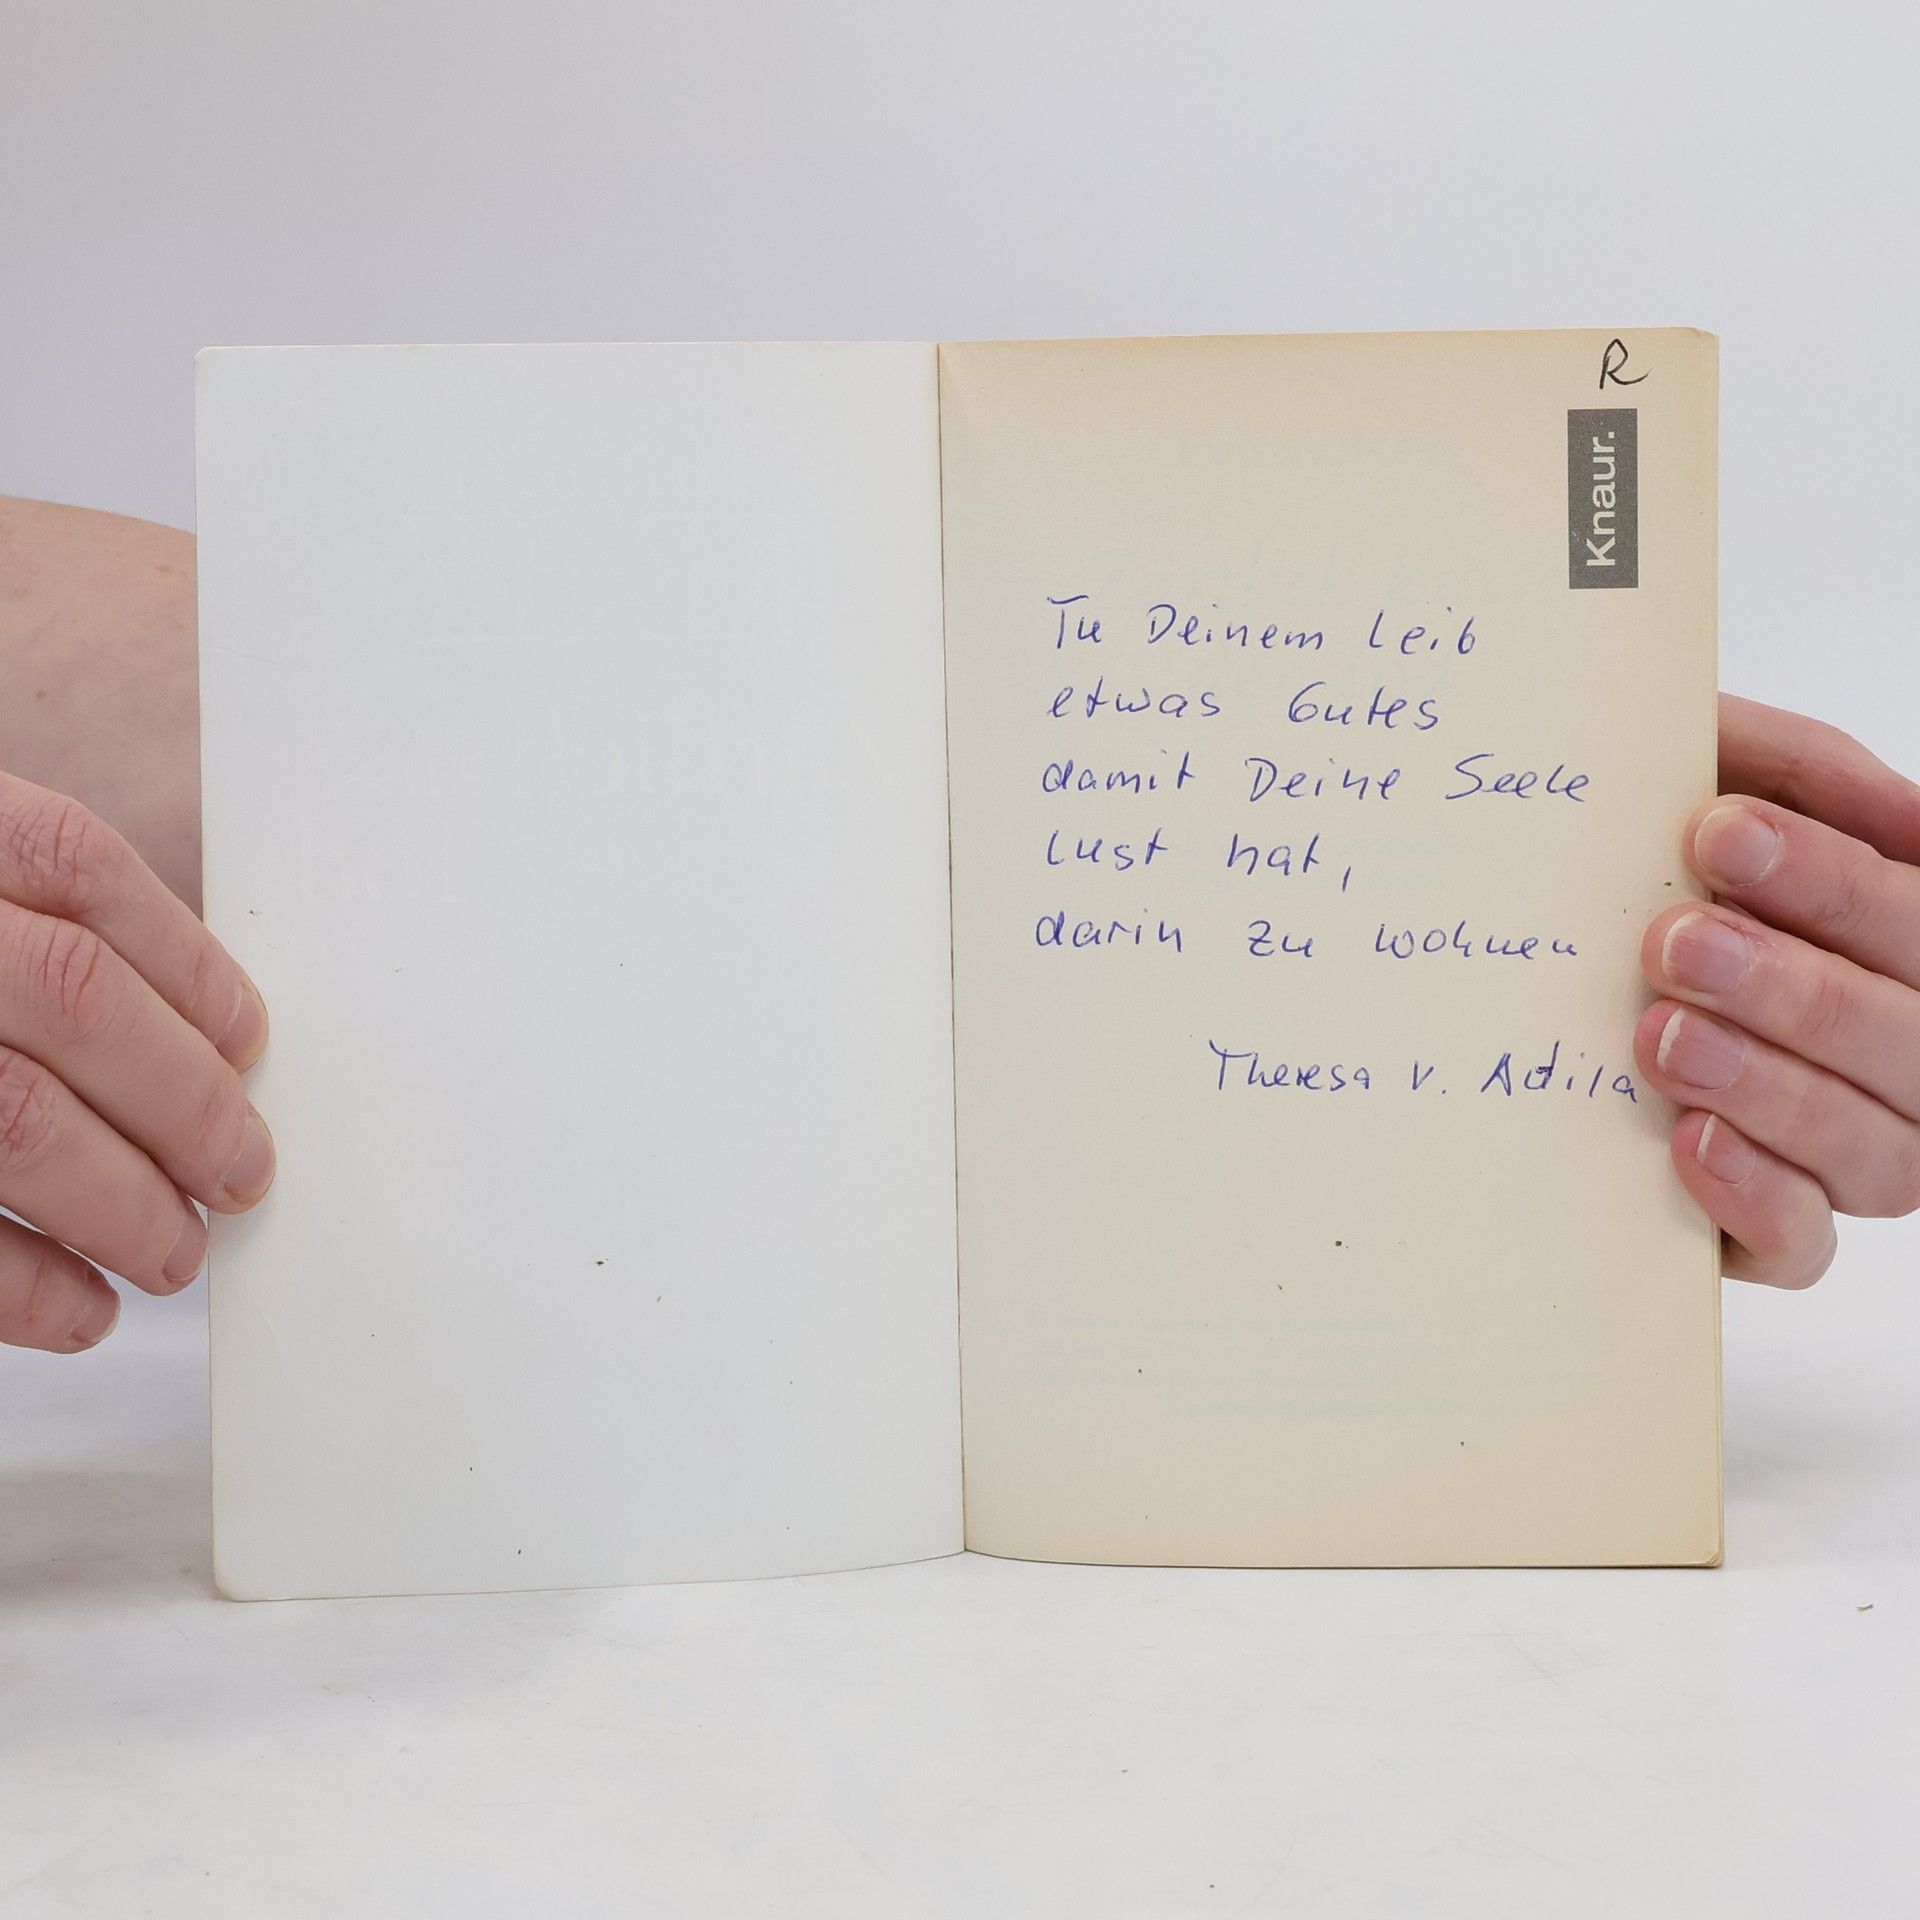 R
Knaur.
Tu Deinem Leib
etwas Gutes
damit Deine Seele
Lust hat,
darin zu wohnen
Theresa v. Adila